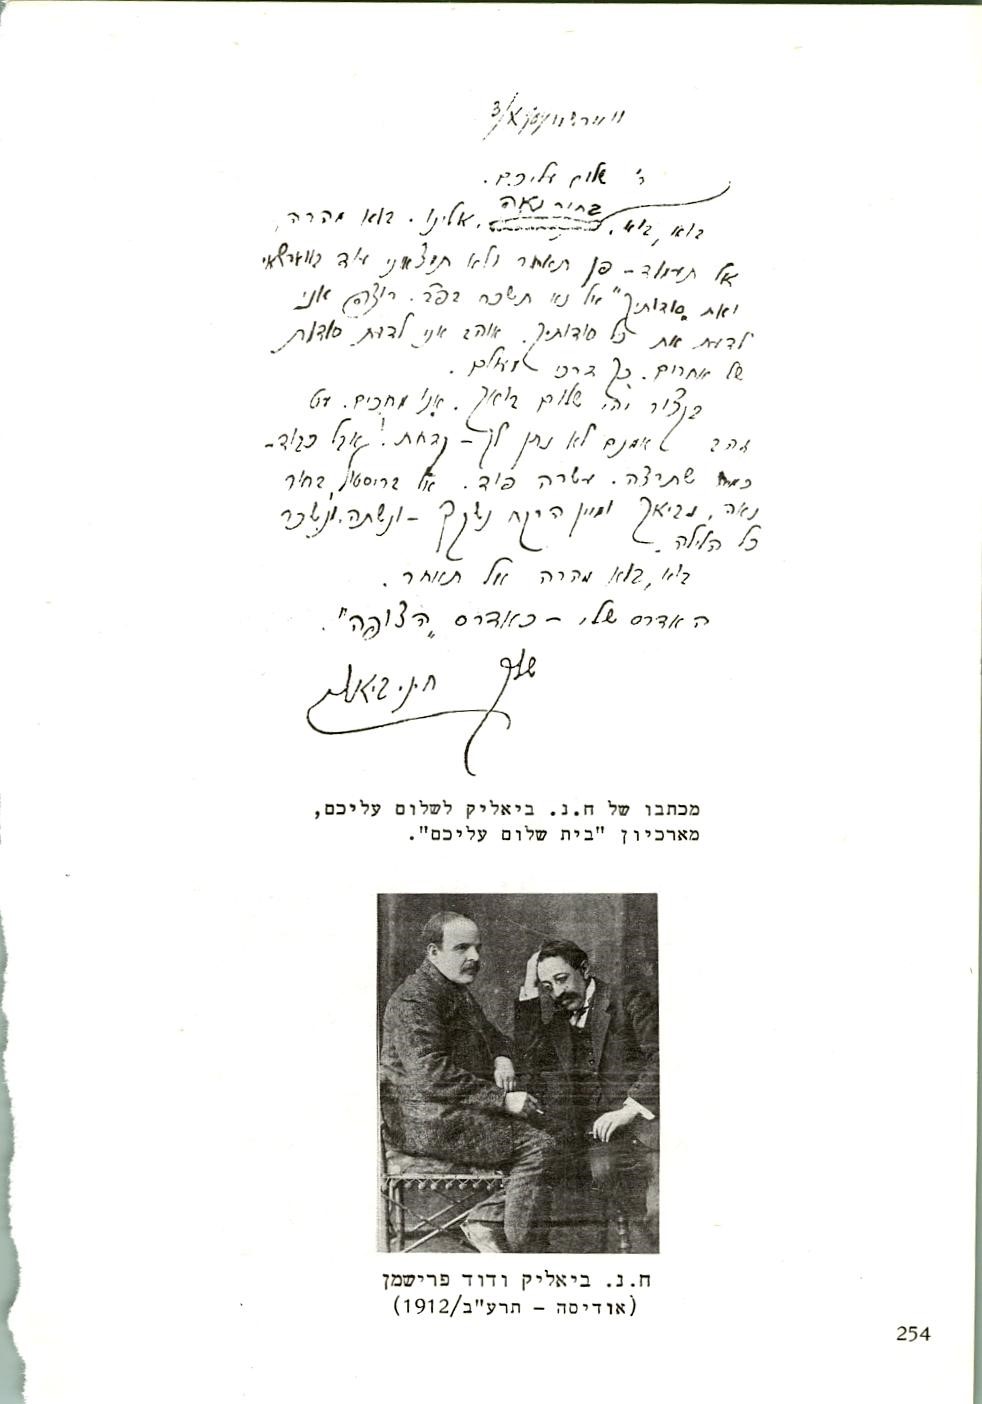 ר' שלום עליכם.
בחיר נאה
בוא, בוא, אלינו. בוא מהרה,
אל תעמוד – פן תאחר ולא תמצאני עוד בווארשא
ואת "סודותיך" אל נא תשכח בפה. רוצה אני
לדעת את כל סודותיך. אוהב אני לדעת סודות
של אחרים. כך דרכי מעולם.
שלום בואך. אנו מחכים. עט
זהב אמנם לא נתן לך – קדחת! אבל כבוד –
כמה שתרצה. עשרה פוד. אל בריסטול, בחיר
נאה, נביאך ומיין הרקח נשקך – ונשתה ונשכר
כל הלילה.
בוא, בוא מהרה אל תאחר.
האדרס שלי – כאדרס "הצופה".
שלך
ח.נ. ביאליק
מכתבו של ח.נ. ביאליק לשלום עליכם,
מארכיון "בית שלום עליכם".
ח.נ. ביאליק ודוד פרישמן
(אודיסה – תרע"ב/1912)
254